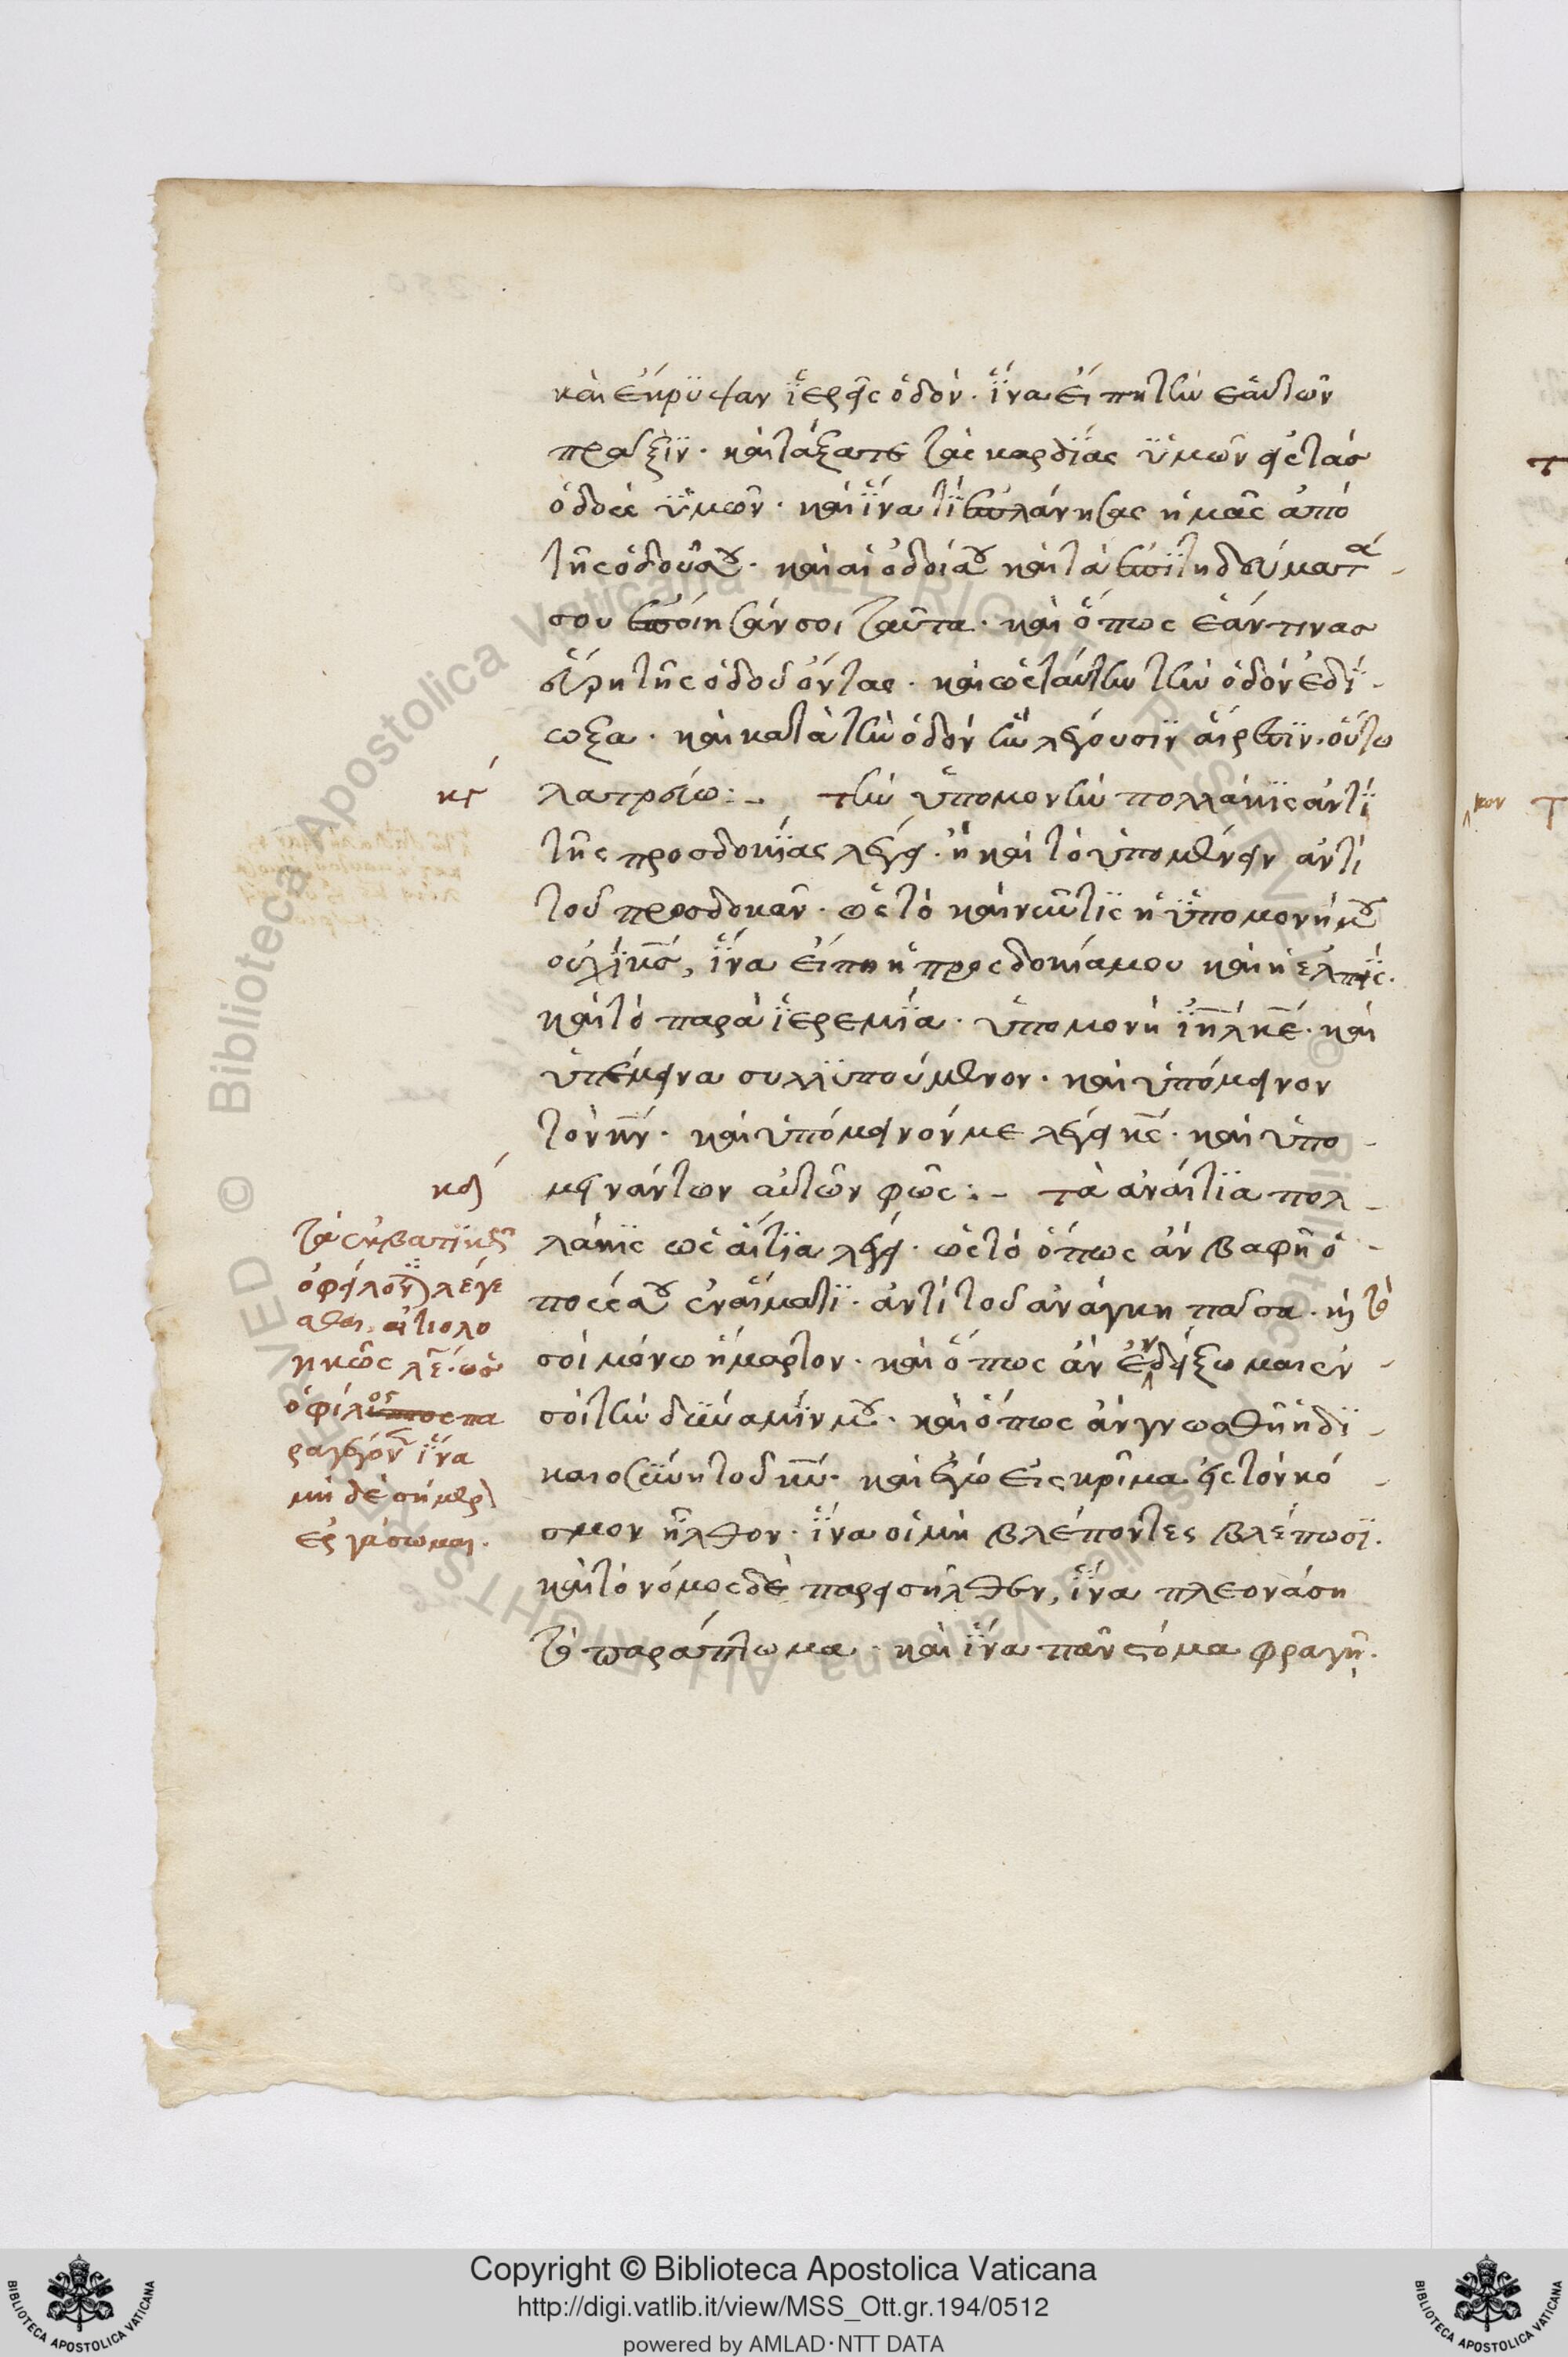 καὶ ἔκρυψαν ἱερεῖς ὁδόν· ἵνα εἴπη τὴν ἑαυτῶν
πρᾶξιν· καὶ τάξατε τὰς καρδίας ὑμῶν εἰς τὰσ
ὁδοὺς ὑμῶν· καὶ ἵνα τί ἐπλάνησας ἡμᾶς ἀπὸ
τῆς ὁδοῦ σου· καὶ αἱ ὁδοί σου καὶ τὰ ἐπιτηδεύματα
σου ἐποίησάν σοι ταῦτα· καὶ ὅπως ἐάν τινασ
εὕρη τῆς ὁδοῦ ὄντας· καὶ ὡς ταύτην τὴν ὁδὸν ἐδί
ωξα· καὶ κατὰ τὴν ὁδὸν ἣν λέγουσιν αἵρεσιν· οὕτω
κγ΄ λατρεύω:– τὴν ὑπομονὴν πολλάκις ἀντὶ
τῆς προσδοκίας λέγει· ἢ καὶ τὸ ὑπομένειν ἀντὶ
τοῦ προσδοκᾶν· ὡς τὸ καὶ νῦν τίς ἡ ὑπομονή μου
οὐχὶ κς, ἵνα εἴπη ἡ προσδοκία μου καὶ ἡ ἐλπίς·
καὶ τὸ παρὰ ἱερεμία· ὑπομονὴ ιηλ κε· καὶ
ὑπέμεινα συλλυπούμενον· καὶ ὑπόμεινον
τὸν κν· καὶ ὑπόμεινόν με λέγει κς· καὶ ὑπο
κδ΄ μεινάντων αὐτῶν φῶς:– τὰ ἀναίτια πολ
λάκις ὡς αἴτια λέγει· ὡς τὸ ὅπως ἂν βαφῆ ὁ
ποῦς σου ἐν αἵματι· ἀντὶ τοῦ ἀνάγκη πᾶσα· καὶ τὸ
σοὶ μόνω ἥμαρτον· καὶ ὅπως ἂν ἐνδείξωμαι ἐν
σοὶ τὴν δύναμίν μου· καὶ ὅπως ἂν γνωσθῆ ἡ δι
καιοσύνη τοῦ κυ· καὶ ἐγὼ εἰς κρῖμα εἰς τὸν κό
σμον ἦλθον· ἵνα οἱ μὴ βλέποντες βλέπωσι·
καὶ τὸ νόμος δὲ παρεισῆλθεν, ἵνα πλεονάση
τὸ παράπτωμα· καὶ ἵνα πᾶν στόμα φραγῆ·
τὰ ἐκβατικῶς
ὀφείλοντα λέγε
σθαι, αἰτιολο
γικῶς λέγει· ὡς
ὁ φίλος πα
ραγέγονεν ἵνα
μηδὲ σήμερον
ἐργάσωμαι·
Copyright © Biblioteca Apostolica Vaticana
http://digi.vatlib.it/view/MSS_Ott.gr.194/0512
powered by AMLAD·NTT DATA